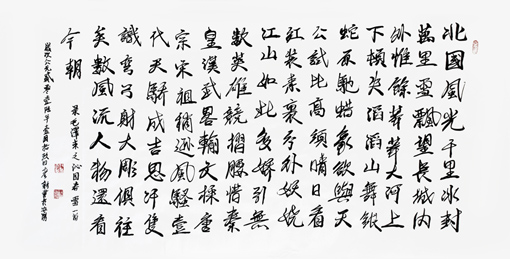 北國風光千里冰封
萬里雪飄望長城內
外惟餘莽莽大河上
下頓失滔滔山舞銀
蛇原馳蜡象欲與天
公試比高須晴日看
紅裝素裹分外妖嬈
江山如此多嬌引無
數英雄競摺腰惜秦
皇漢武略輸文採唐
宗宋祖稍遜風騷壹
代天驕成吉思汗隻
識彎弓射大雕俱往
矣數風流人物還看
今朝
录毛澤東之沁園春雪一首
歲次公元貳零壹